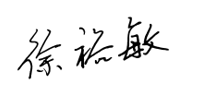 徐裕敏